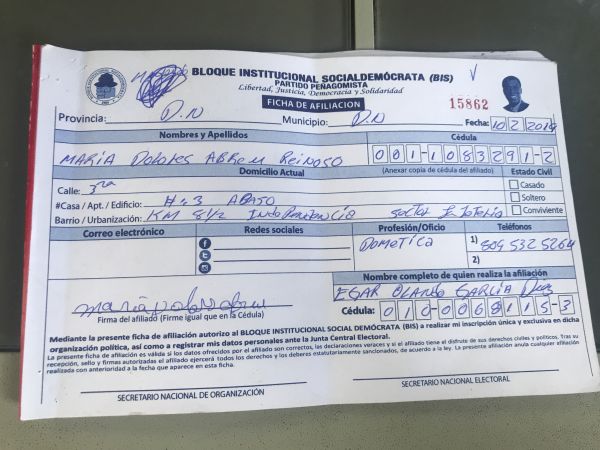 BLOQUE INSTITUCIONAL SOCIALDEMÓCRATA (BIS)
PARTIDO PEÑAGOMISTA
Libertad, Justicia, Democracia y Solidaridad
FICHA DE AFILIACION
15862
Provincia: D.N Municipio: D.N Fecha: 10/2/2019
Nombres y Apellidos Cédula
MARÍA Dolores ABREU REINOSO 001-1083291-2
Domicilio Actual (Anexar copia de cédula del afiliado) Estado Civil
Calle: 3ra
Casado
#Casa / Apt. / Edificio: #3 ABAJO Soltero
Barrio / Urbanización: KM 8 1/2 Independencia Sector Conviviente
Correo electrónico Redes sociales Profesión/Oficio Teléfonos
DOMETICA 1) 809 532 5264
2)
Nombre completo de quien realiza la afiliación
EGAR GARCÍA
Cédula: 010-0068115-3
Firma del afiliado (Firme igual que en la Cédula)
Mediante la presente ficha de afiliación autorizo al BLOQUE INSTITUCIONAL SOCIAL DEMÓCRATA (BIS) a realizar mi inscripción única y exclusiva en dicha
organización política, así como a registrar mis datos personales ante la Junta Central Electoral.
La presente ficha de afiliación es válida si los datos ofrecidos por el afiliado son correctos, las declaraciones veraces y si el afiliado tiene el disfrute de sus derechos civiles y políticos. Tras su
recepción, sello y firmas autorizadas el afiliado ejercerá todos los derechos y los deberes estatutariamente sancionados, de acuerdo a la ley. La presente afiliación anula cualquier afiliación
realizada con anterioridad a la fecha que aparece en esta ficha.
SECRETARIO NACIONAL DE ORGANIZACIÓN
SECRETARIO NACIONAL ELECTORAL